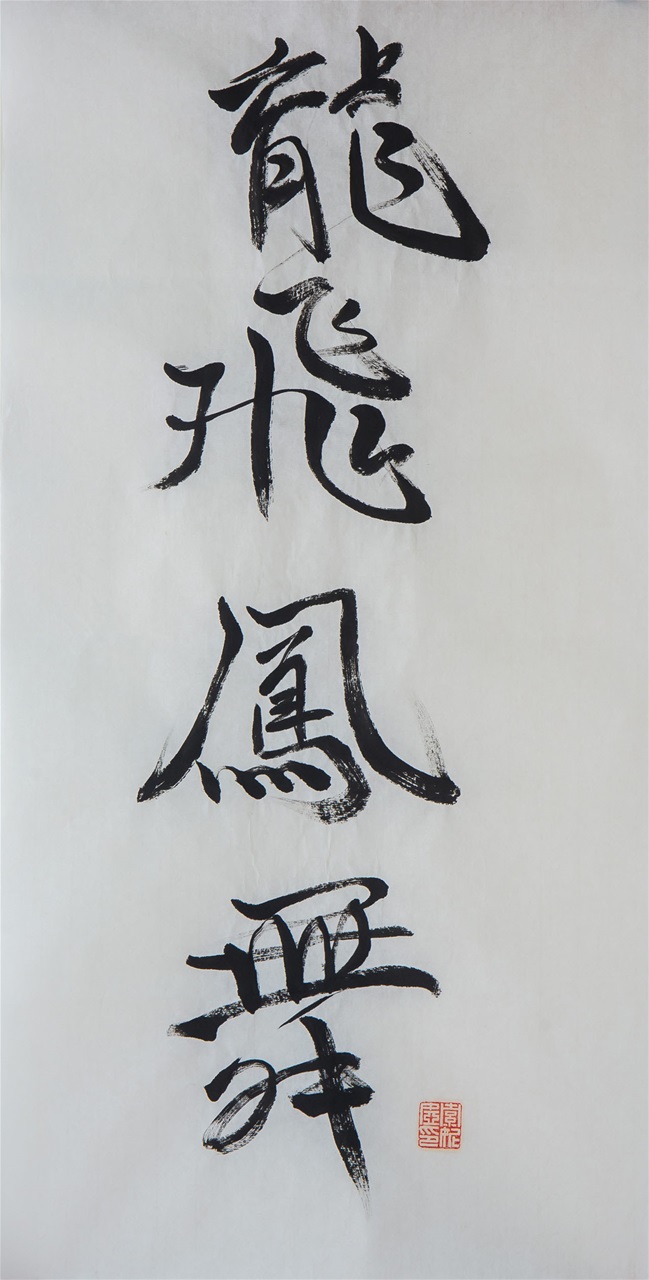 龍飛鳳舞